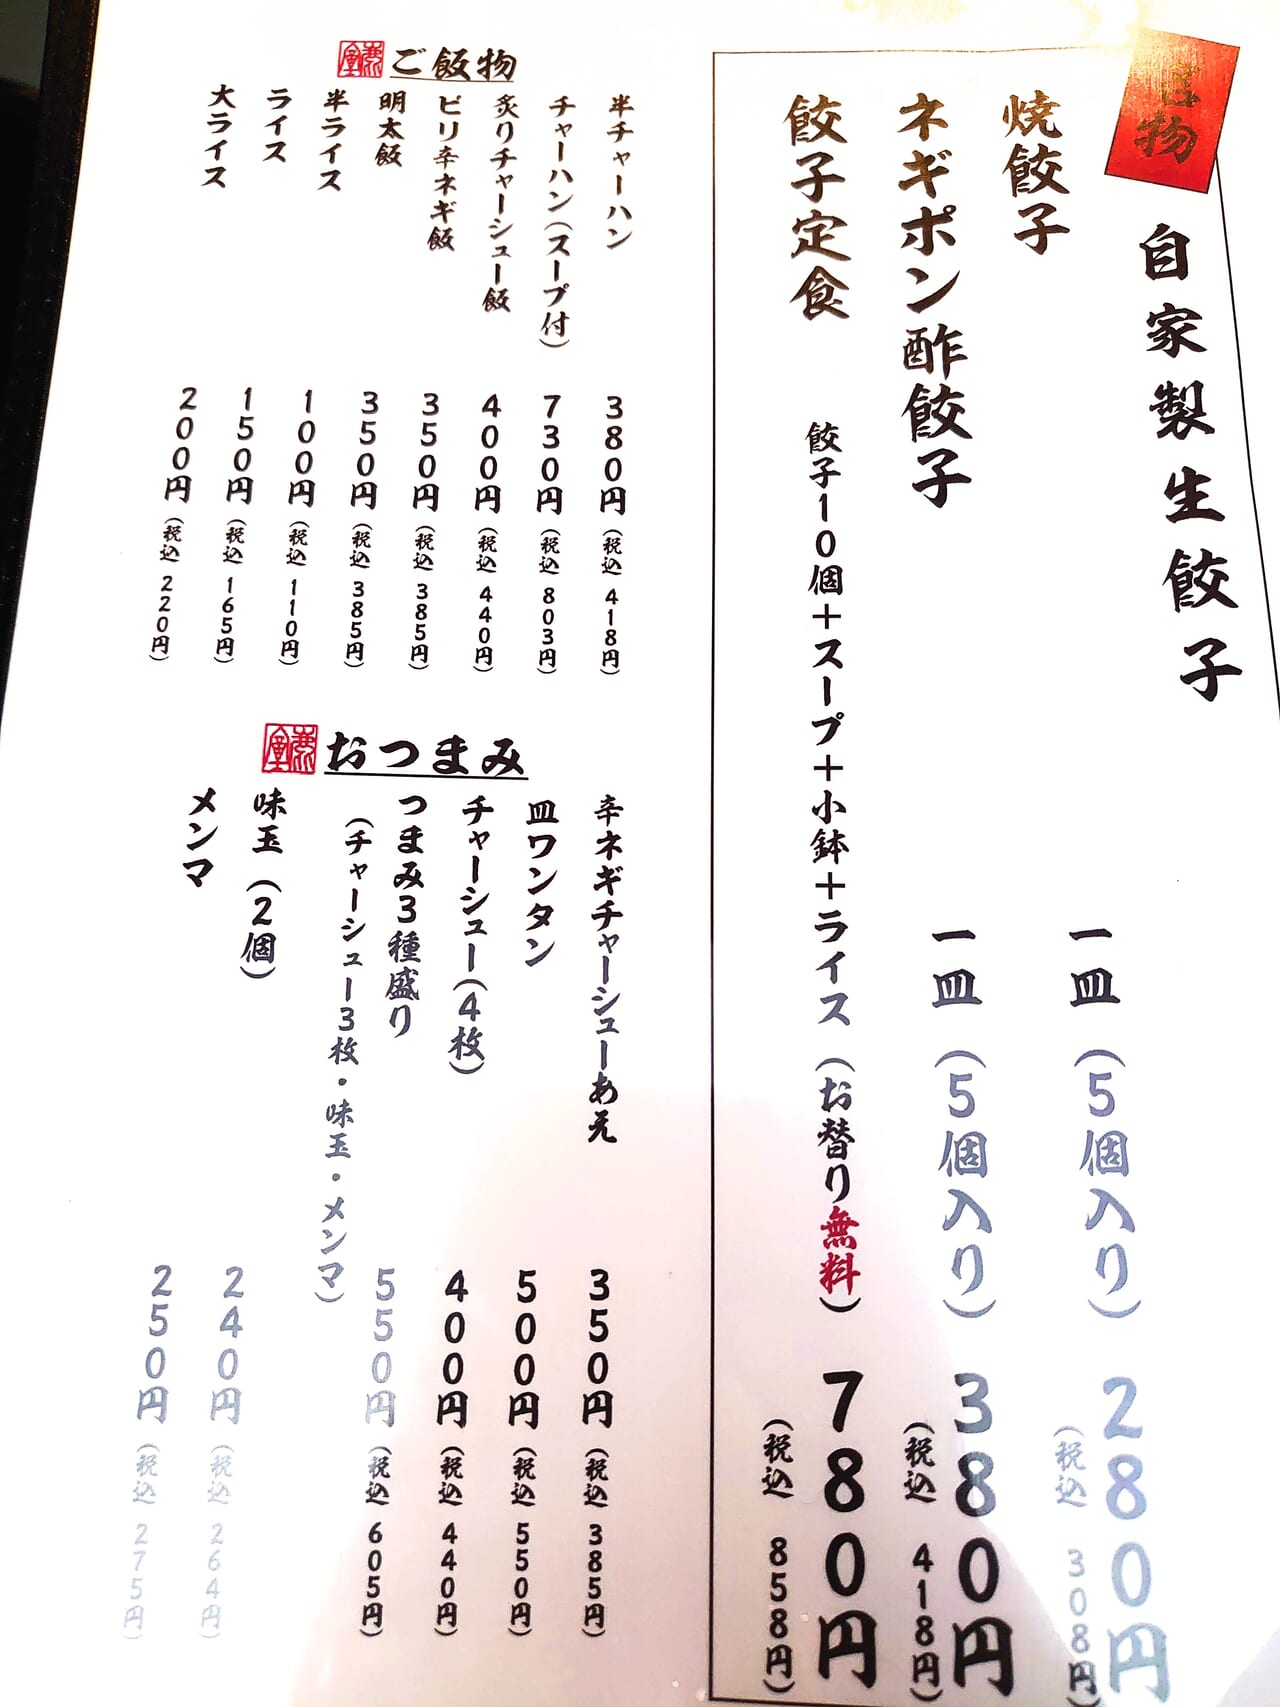 名物
自家製生餃子
焼餃子 一皿(5個入り) 280円
(税込 308円)
ネギポン酢餃子 一皿(5個入り) 380円
(税込 418円)
餃子定食 餃子10個+スープ+小鉢+ライス(お替り無料) 780円
(税込 858円)
ご飯物
半チャーハン 380円(税込 418円)
チャーハン(スープ付) 730円(税込 803円)
炙りチャーシュー飯 400円(税込 440円)
ピリ辛ネギ飯 350円(税込 385円)
明太飯 350円(税込 385円)
半ライス 100円(税込 110円)
ライス 150円(税込 165円)
大ライス 200円(税込 220円)
おつまみ
辛ネギチャーシューあえ 350円(税込 385円)
皿ワンタン 500円(税込 550円)
チャーシュー(4枚) 400円(税込 440円)
つまみ3種盛り 550円(税込 605円)
(チャーシュー3枚・味玉・メンマ)
味玉(2個) 240円(税込 264円)
メンマ 250円(税込 275円)